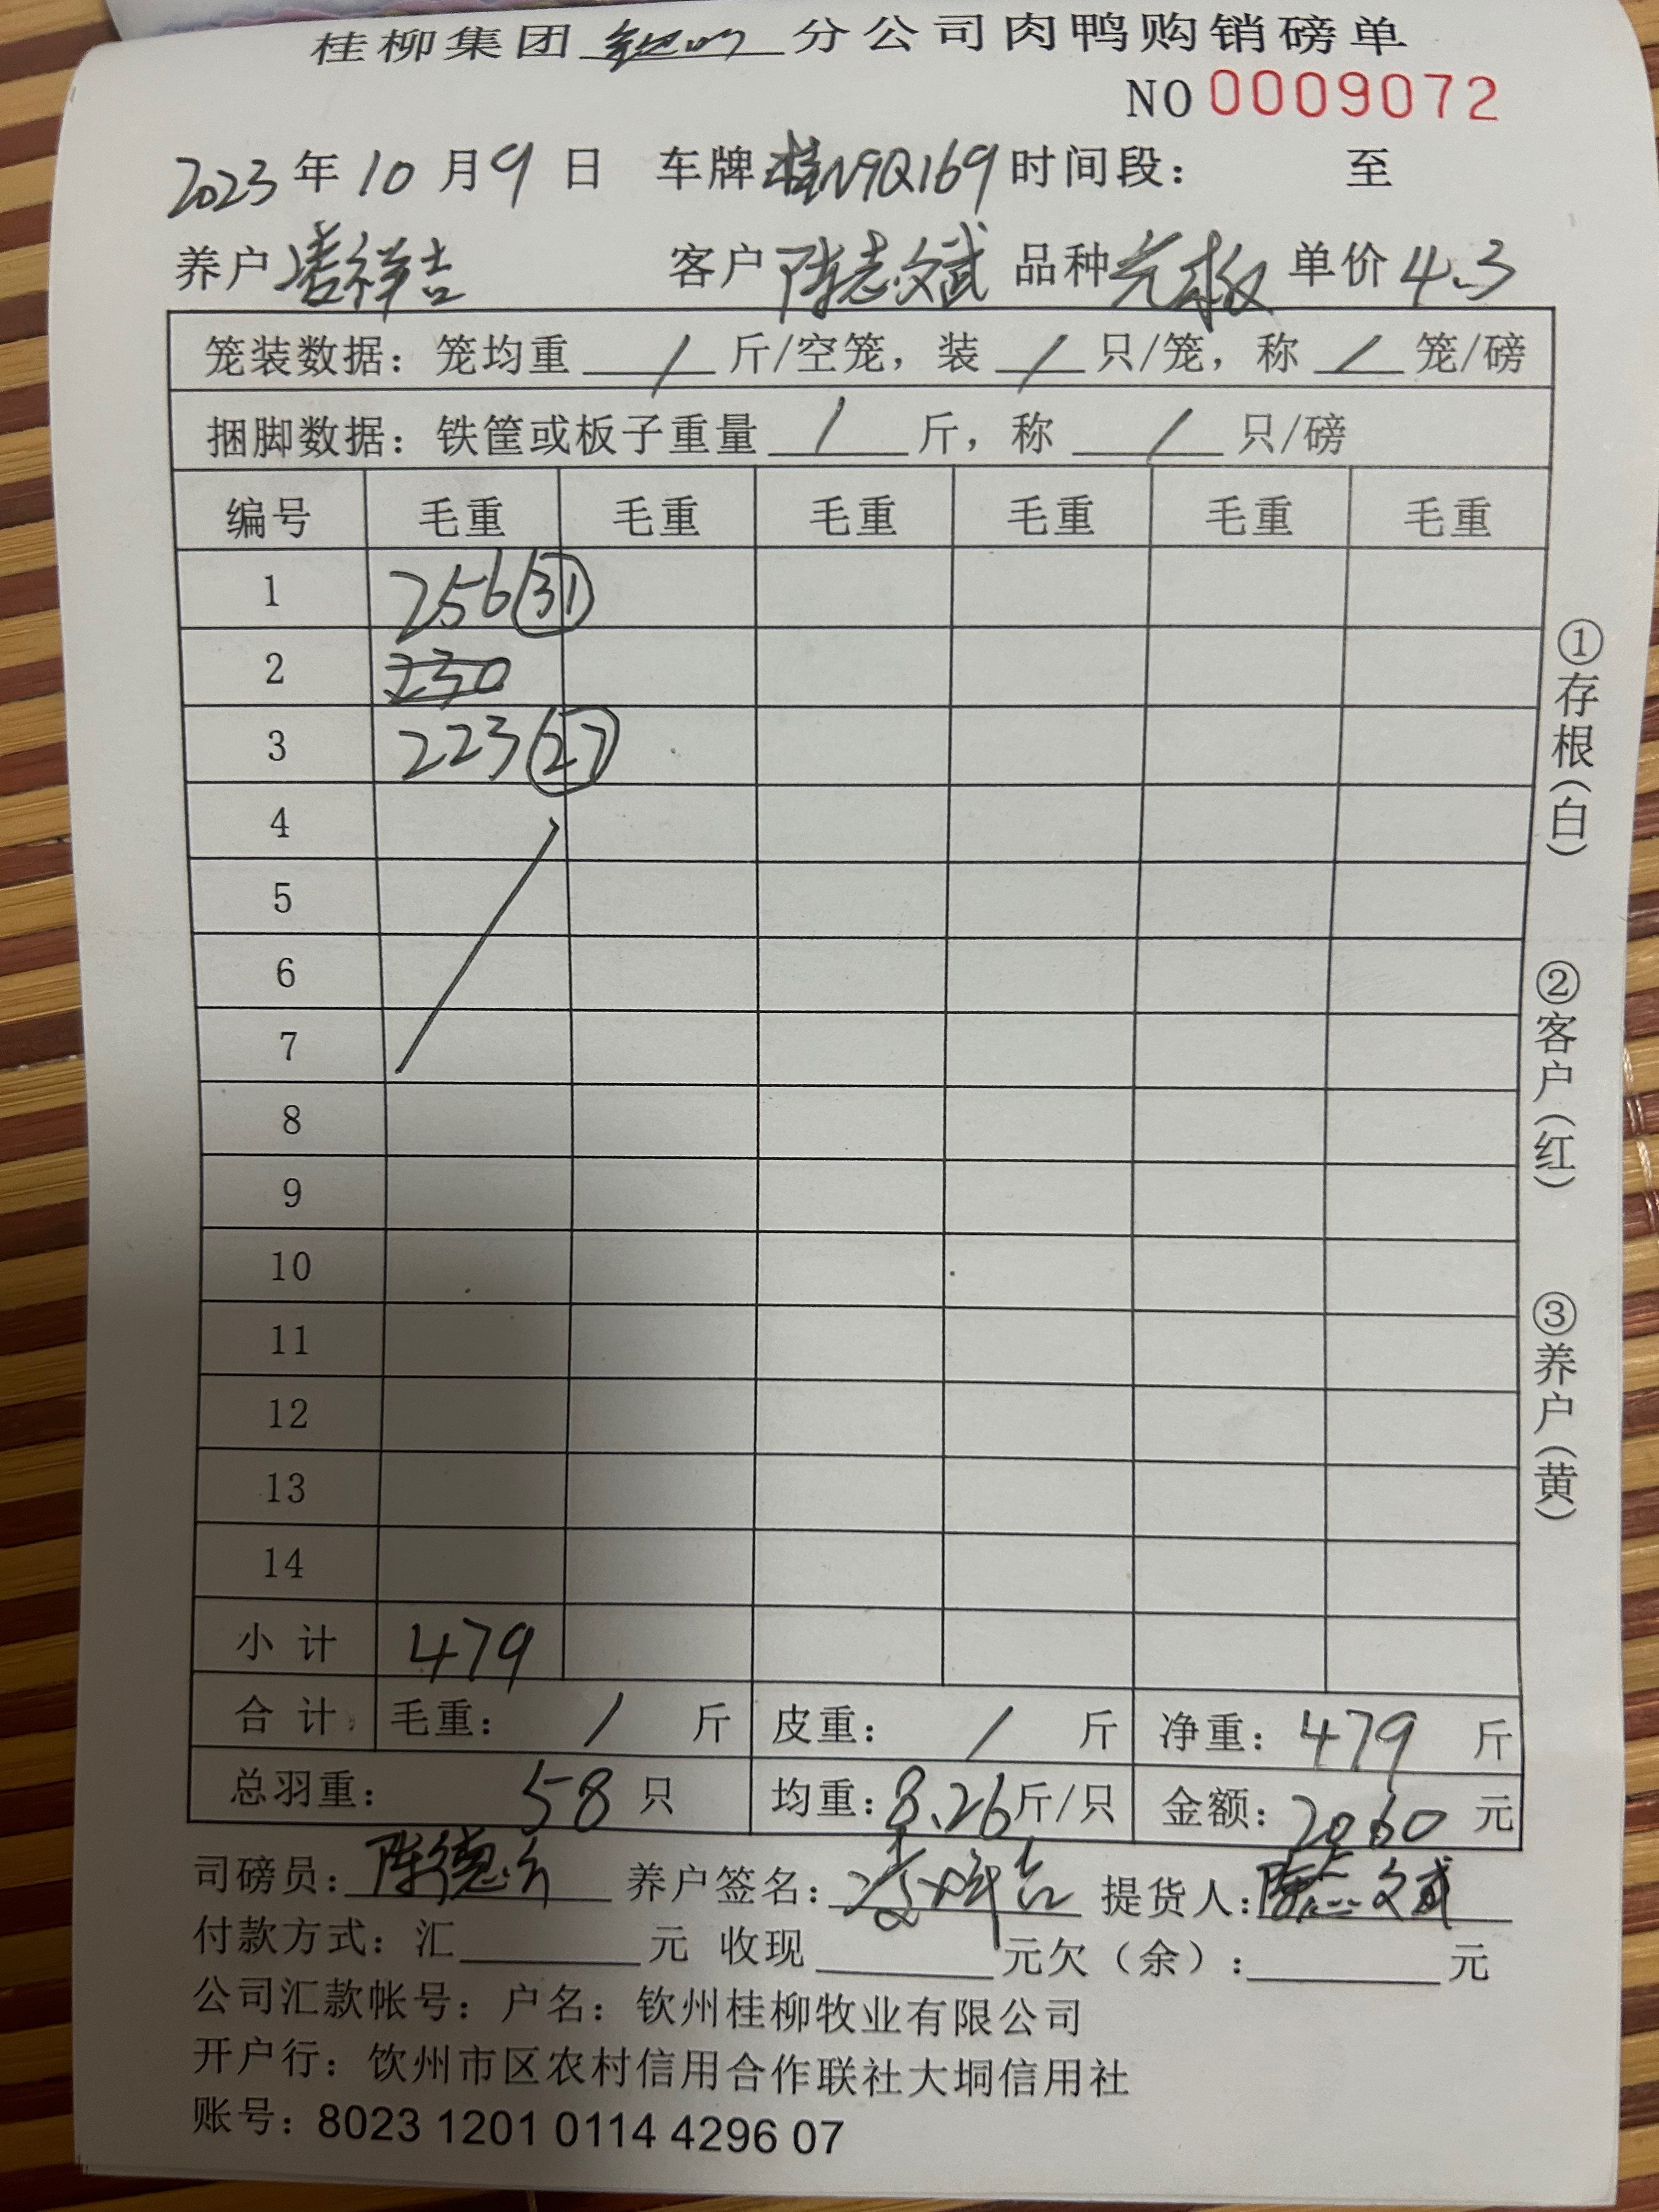 桂柳集团 分公司肉鸭购销磅单
NO 0009072
2023年10月9日 车牌桂N9Q169时间段： 至
养户 祥吉 客户 陈志斌 品种 单价 4.3
笼装数据：笼均重 / 斤/空笼，装 / 只/笼，称 / 笼/磅
捆脚数据：铁筐或板子重量 / 斤，称 / 只/磅
编号 毛重 毛重 毛重 毛重 毛重 毛重
1 256 (31)
2 230
3 223 (27)
4
5
6
7
8
9
10
11
12
13
14
小计 479
合计 毛重： / 斤 皮重： / 斤 净重：479 斤
总羽重： 58 只 均重：8.26斤/只 金额：2060 元
司磅员：陈德 养户签名： 祥吉 提货人：陈志斌
付款方式：汇 元 收现 元欠（余）： 元
公司汇款帐号：户名：钦州桂柳牧业有限公司
开户行：饮州市区农村信用合作联社大垌信用社
账号：8023 1201 0114 4296 07
①存根（白）
②客户（红）
③养户（黄）